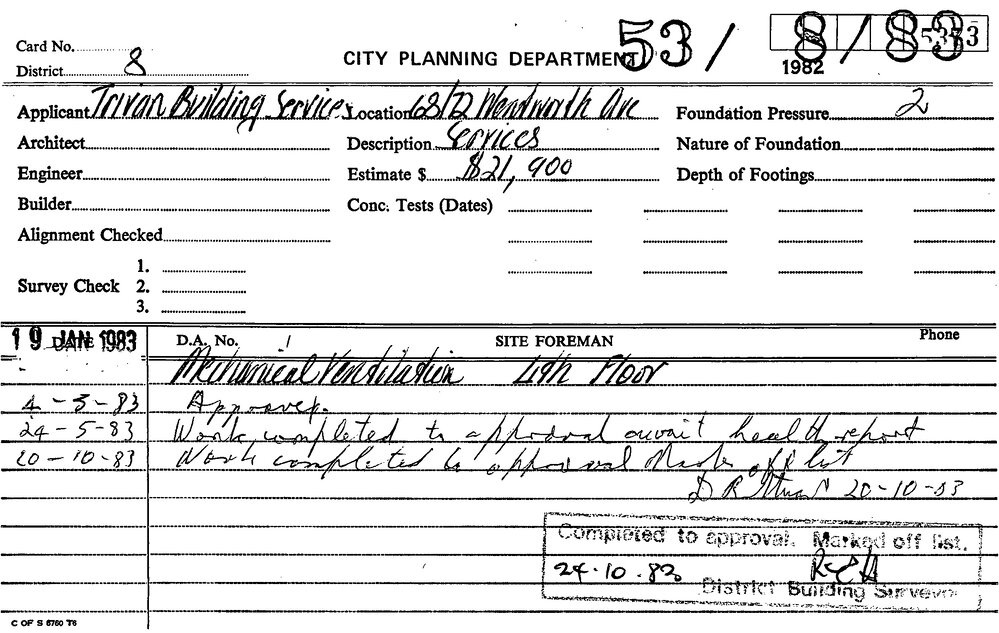 Card No.
District 8
CITY PLANNING DEPARTMENT
53/ 8/83
1982
Applicant Trivan Building Services Location 68/72 Wentworth Ave Foundation Pressure 2
Architect Description Services Nature of Foundation
Engineer Estimate $ $21,900 Depth of Footings
Builder Conc. Tests (Dates)
Alignment Checked
Survey Check 1.
2.
3.
19 JAN 1983 D.A. No. / SITE FOREMAN Phone
Mechanical Ventilation 4th Floor
4-5-83 Approved.
24-5-83 Work completed to approval await health report
20-10-83 Work completed to approval Mark off list
D R 20-10-83
Completed to approval. Marked off list.
24.10.83
District Building Surveyor
C OF S 6760 T6